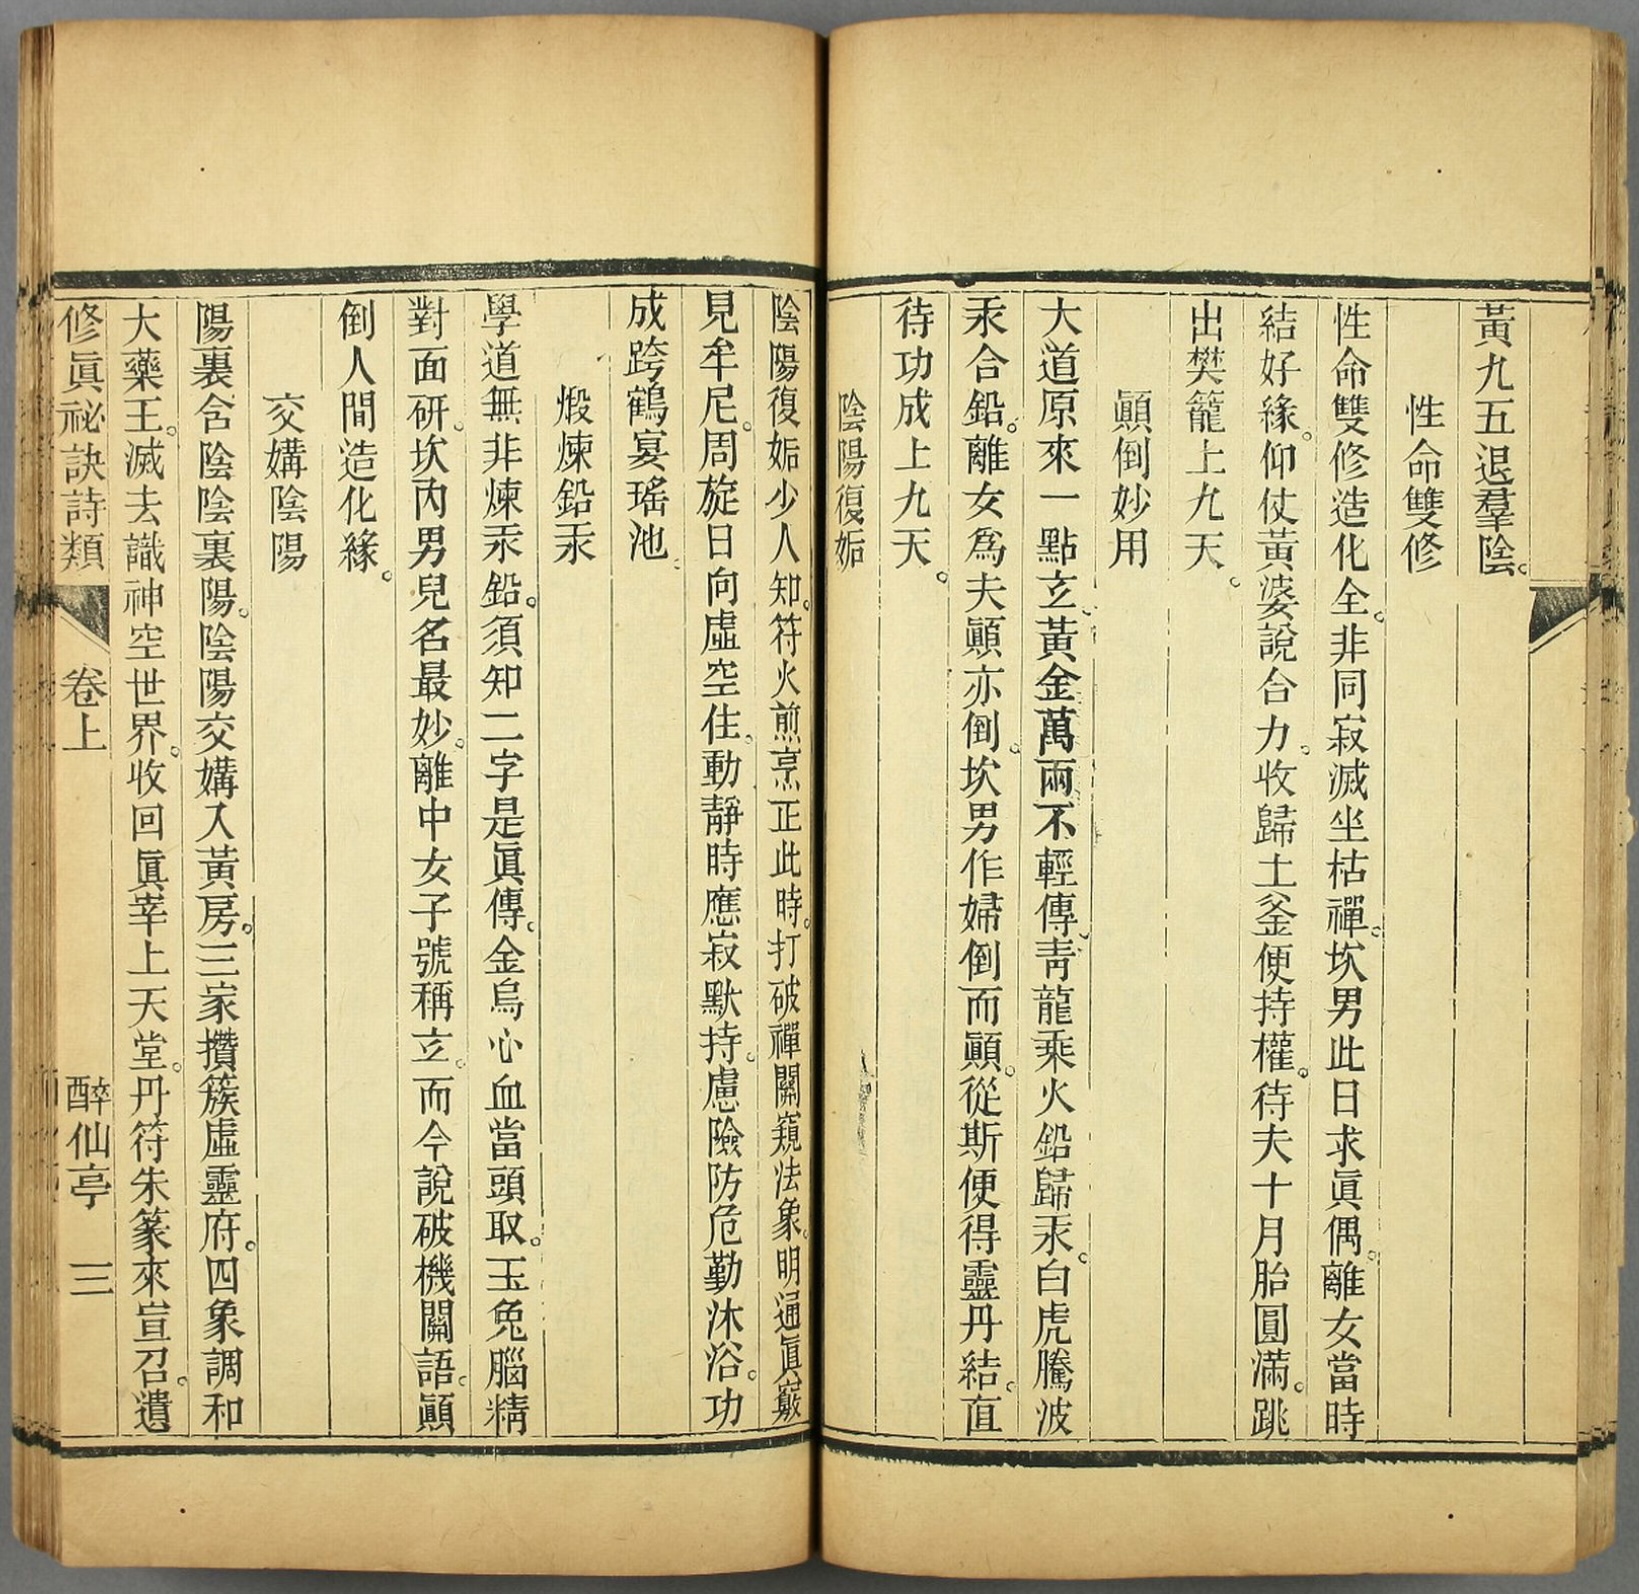 黃九五退羣陰。
性命雙修
性命雙修造化全。非同寂滅坐枯禪。坎男此日求眞偶。離女當時
結好緣。仰仗黃婆說合力。收歸土釜便持權。待夫十月胎圓滿。跳
出樊籠上九天。
顚倒妙用
大道原來一點玄。黃金萬兩不輕傳。靑龍乘火鉛歸汞。白虎騰波
汞合鉛。離女爲夫顚亦倒。坎男作婦倒而顚。從斯便得靈丹結。直
待功成上九天。
陰陽復姤
陰陽復姤少人知。符火煎烹正此時。打破禪關窺法象。明通眞竅
見牟尼。周旋日向虛空住。動靜時應寂默持。慮險防危勤沐浴。功
成跨鶴宴瑤池。
煅煉鉛汞
學道無非煉汞鉛。須知二字是眞傳。金烏心血當頭取。玉兔腦精
對面研。坎內男兒名最妙。離中女子號稱玄。而今說破機關語。顚
倒人間造化緣。
交媾陰陽
陽裏含陰陰裏陽。陰陽交媾入黃房。三家攢簇虛靈府。四象調和
大藥王。滅去識神空世界。收回眞宰上天堂。丹符朱篆來宣召。遺
修眞祕訣詩類 卷上 醉仙亭 三